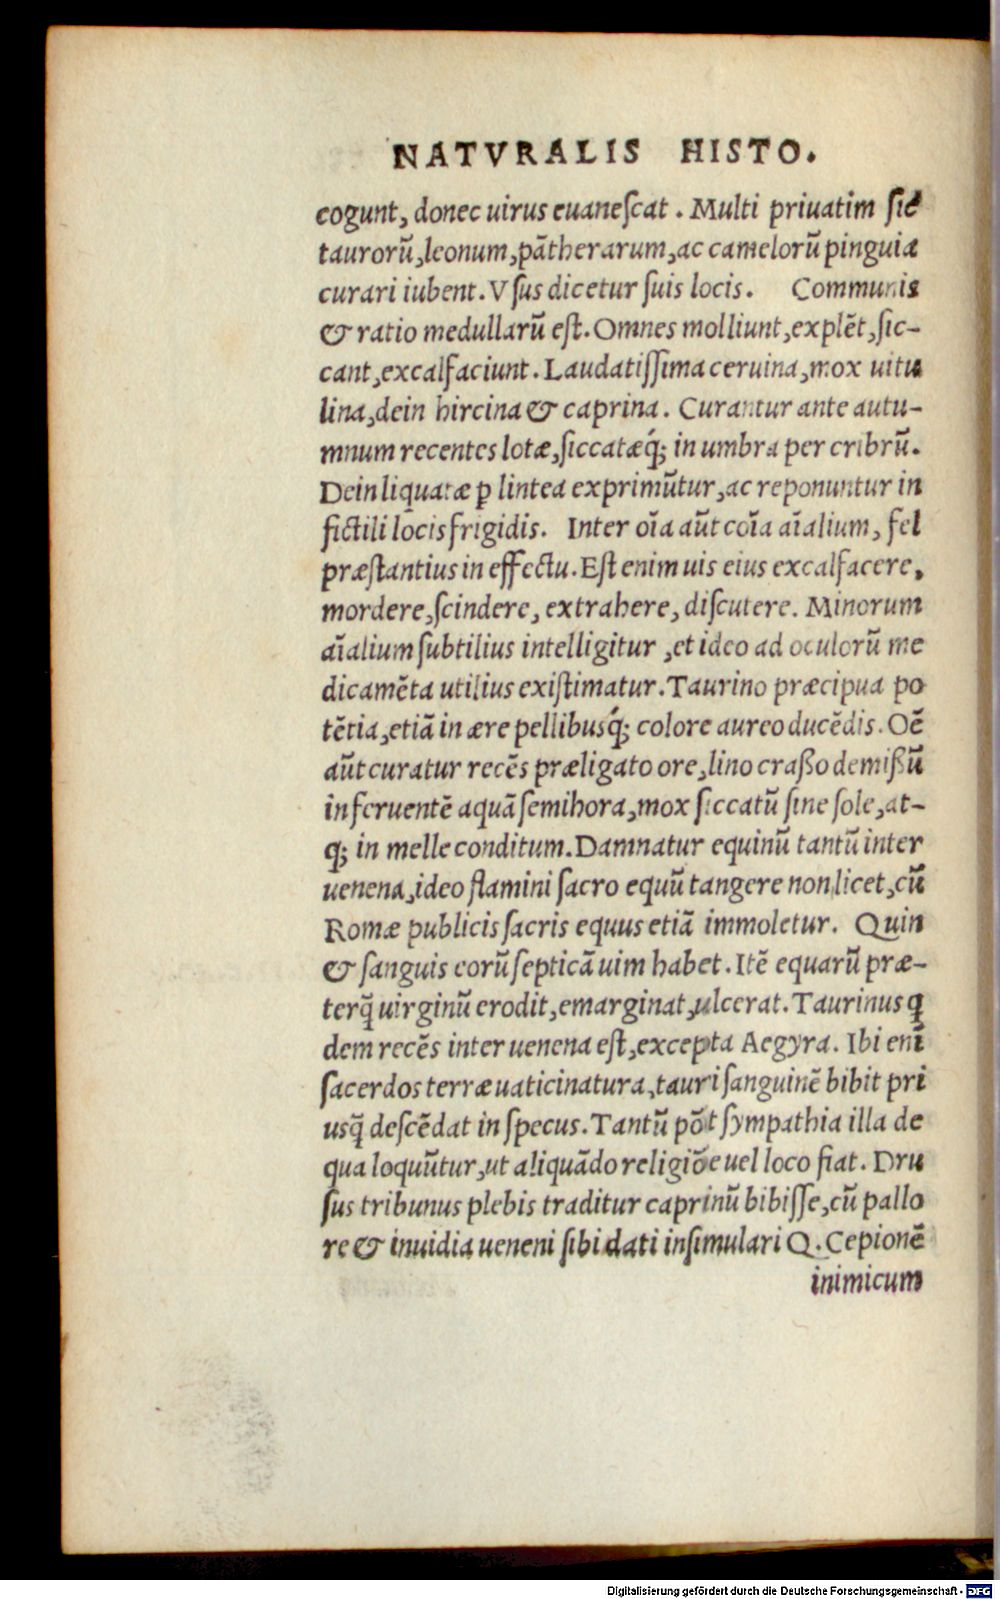 NATVRALIS HISTO.
cogunt, donec uirus euanescat. Multi priuatim sic
taurorū, leonum, pātherarum, ac camelorū pinguia
curari iubent. Vsus dicetur suis locis. Communis
& ratio medullarū est. Omnes molliunt, explēt, sic-
cant, excalfaciunt. Laudatissima ceruina, mox uitu
lina, dein hircina & caprina. Curantur ante autu-
mnum recentes lotæ, siccatæq́; in umbra per cribrū.
Dein liquatæ ꝑ lintea exprimūtur, ac reponuntur in
fictili locis frigidis. Inter oīa aūt coīa aīalium, fel
præstantius in effectu. Est enim uis eius excalfacere,
mordere, scindere, extrahere, discutere. Minorum
aīalium subtilius intelligitur, et ideo ad oculorū me
dicamēta utilius existimatur. Taurino præcipua po
tētia, etiā in ære pellibusq́; colore aureo ducēdis. Oē
aūt curatur recēs præligato ore, lino craßo demißū
in feruentē aquā semihora, mox siccatū sine sole, at-
q; in melle conditum. Damnatur equinū tantū inter
uenena, ideo flamini sacro equū tangere non licet, cū
Romæ publicis sacris equus etiā immoletur. Quin
& sanguis eorū septicā uim habet. Itē equarū præ-
terq̄ uirginū erodit, emarginat, ulcerat. Taurinus q
dem recēs inter uenena est, excepta Aegyra. Ibi enī
sacerdos terræ uaticinatura, tauri sanguinē bibit pri
usq̄ descēdat in specus. Tantū pōt sympathia illa de
qua loquūtur, ut aliquādo religiōe uel loco fiat. Dru
sus tribunus plebis traditur caprinū bibisse, cū pallo
re & inuidia ueneni sibi dati insimulari Q. Cepionē
inimicum
Digitalisierung gefördert durch die Deutsche Forschungsgemeinschaft - DFG